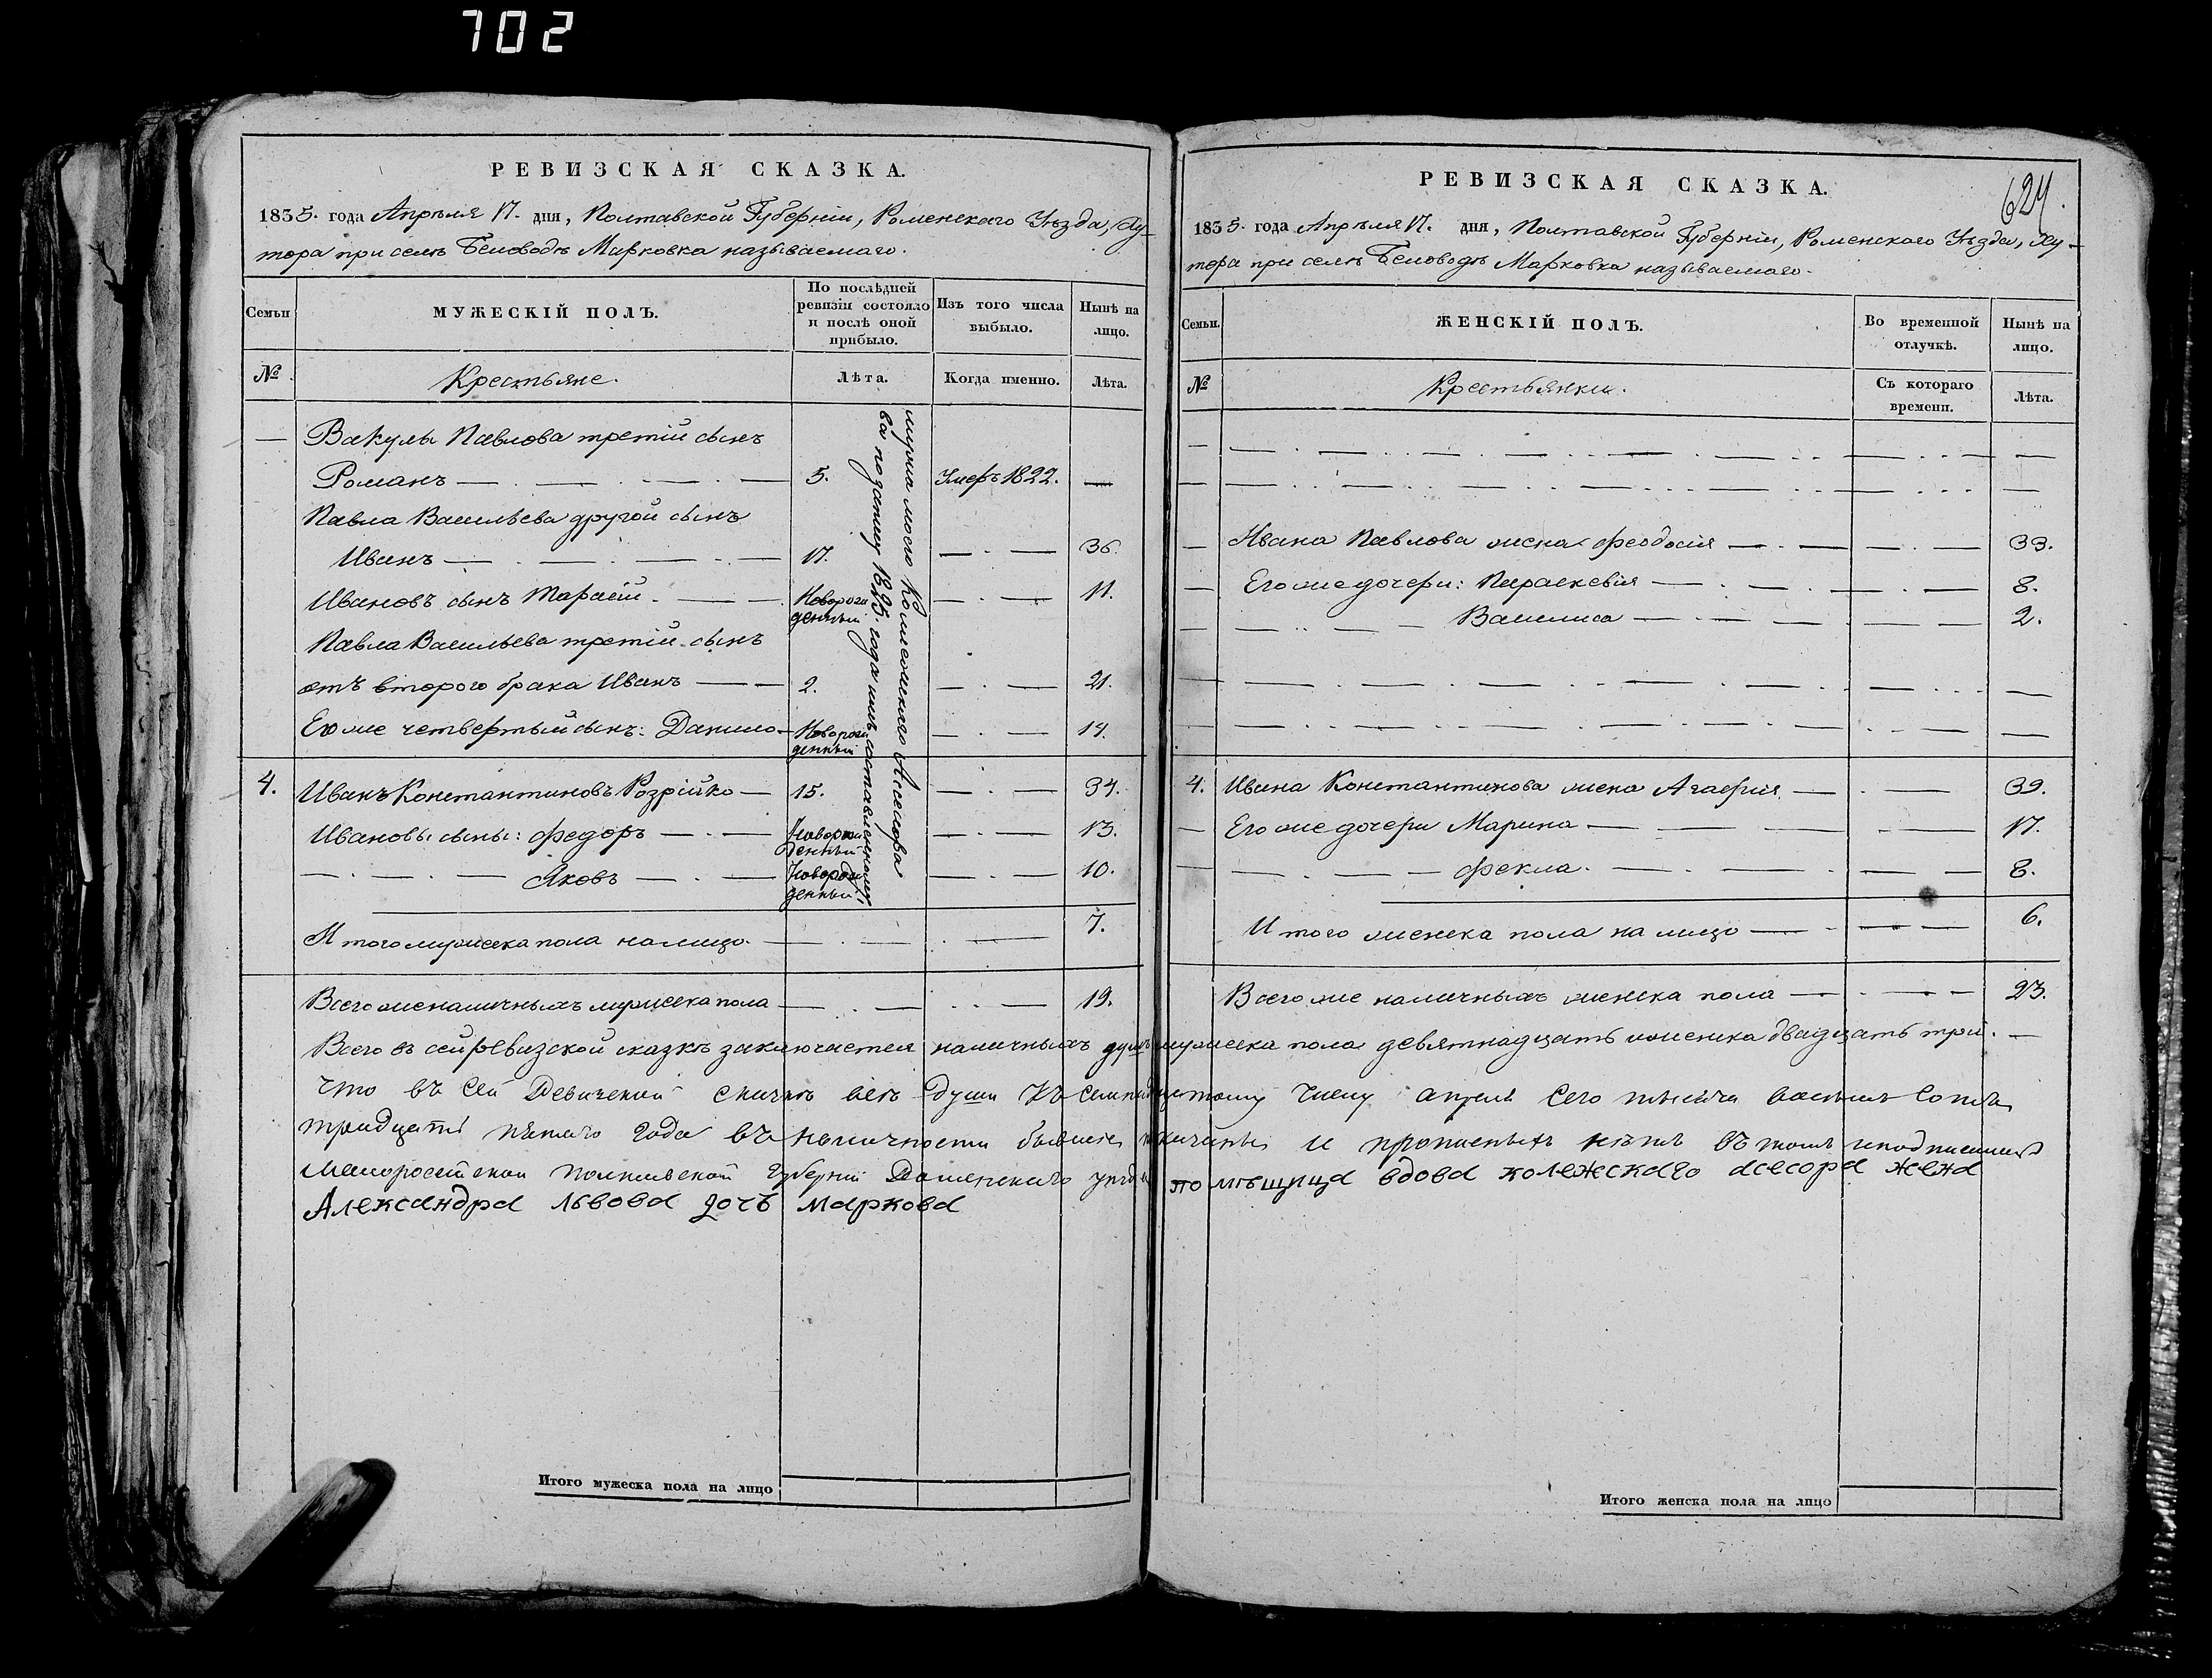 702
РЕВИЗСКАЯ СКАЗКА.
1835. года Апрѣля 17. дня, Полтавской Губерніи, Роменскаго Уѣзда, Ху-
тора при селѣ Беловодѣ Марковка называемаго.
Семьи
МУЖЕСКІЙ ПОЛЪ.
По послѣдней ревизіи состояло и послѣ оной прибыло.
Изъ того числа выбыло.
Нынѣ на лицо.
№
Крестьяне.
Лѣта.
Когда именно.
Лѣта.
Вакулы Павлова третій сынъ
Романъ — 5. Умеръ 1822. —
Павла Васильева другой сынъ
Иванъ — 17. — 36.
Ивановъ сынъ Тарасій — Новорож денный — 11.
Павла Васильева третій сынъ
отъ второго брака Иванъ — 2. — 21.
Его же четвертый сынъ: Данило — Новорож денный — 14.
4. Иванъ Константиновъ Розрійко — 15. — 34.
Ивановы сыны: Федоръ — Новорож денный — 13.
Яковъ — Новорож денный — 10.
мужа моего Колежскаго Асесора
ва поданну 1815. года имъ составленному.
Итого мужеска пола на лицо — 7.
Всего же наличныхъ мужеска пола — 19.
624.
РЕВИЗСКАЯ СКАЗКА.
1835. года Апрѣля 17. дня, Полтавской Губерніи, Роменскаго Уѣзда, Ху-
тора при селѣ Беловодѣ Марковка называемаго.
Семьи.
ЖЕНСКІЙ ПОЛЪ.
Во временной отлучкѣ.
Нынѣ на лицо.
№
Крестьянки.
Съ котораго времени.
Лѣта.
Ивана Павлова жена Феодосія — 33.
Его же дочери: Параскевія — 8.
Василиса — 2.
4. Ивана Константинова жена Агафія — 39.
Его же дочери Марина — 17.
Фекла — 8.
Итого женска пола на лицо — 6.
Всего же наличныхъ женска пола — 23.
Всего въ сей ревизской сказкѣ заключается наличныхъ душъ мужеска пола девятнадцать и женска двадцать три. —
Что въ сей Ревизской скаскѣ всѣ души къ семнадцатому числу апреля сего тысяча восемь сотъ
тридцать пятаго года въ наличности бывшие и прописныхъ нѣтъ въ томъ и подписалась
Малоросийской Полтавской Губерніи Роменскаго уезда помѣщица вдова колежскаго асесора жена
Александра Львова дочъ Маркова
Итого мужеска пола на лицо
Итого женска пола на лицо